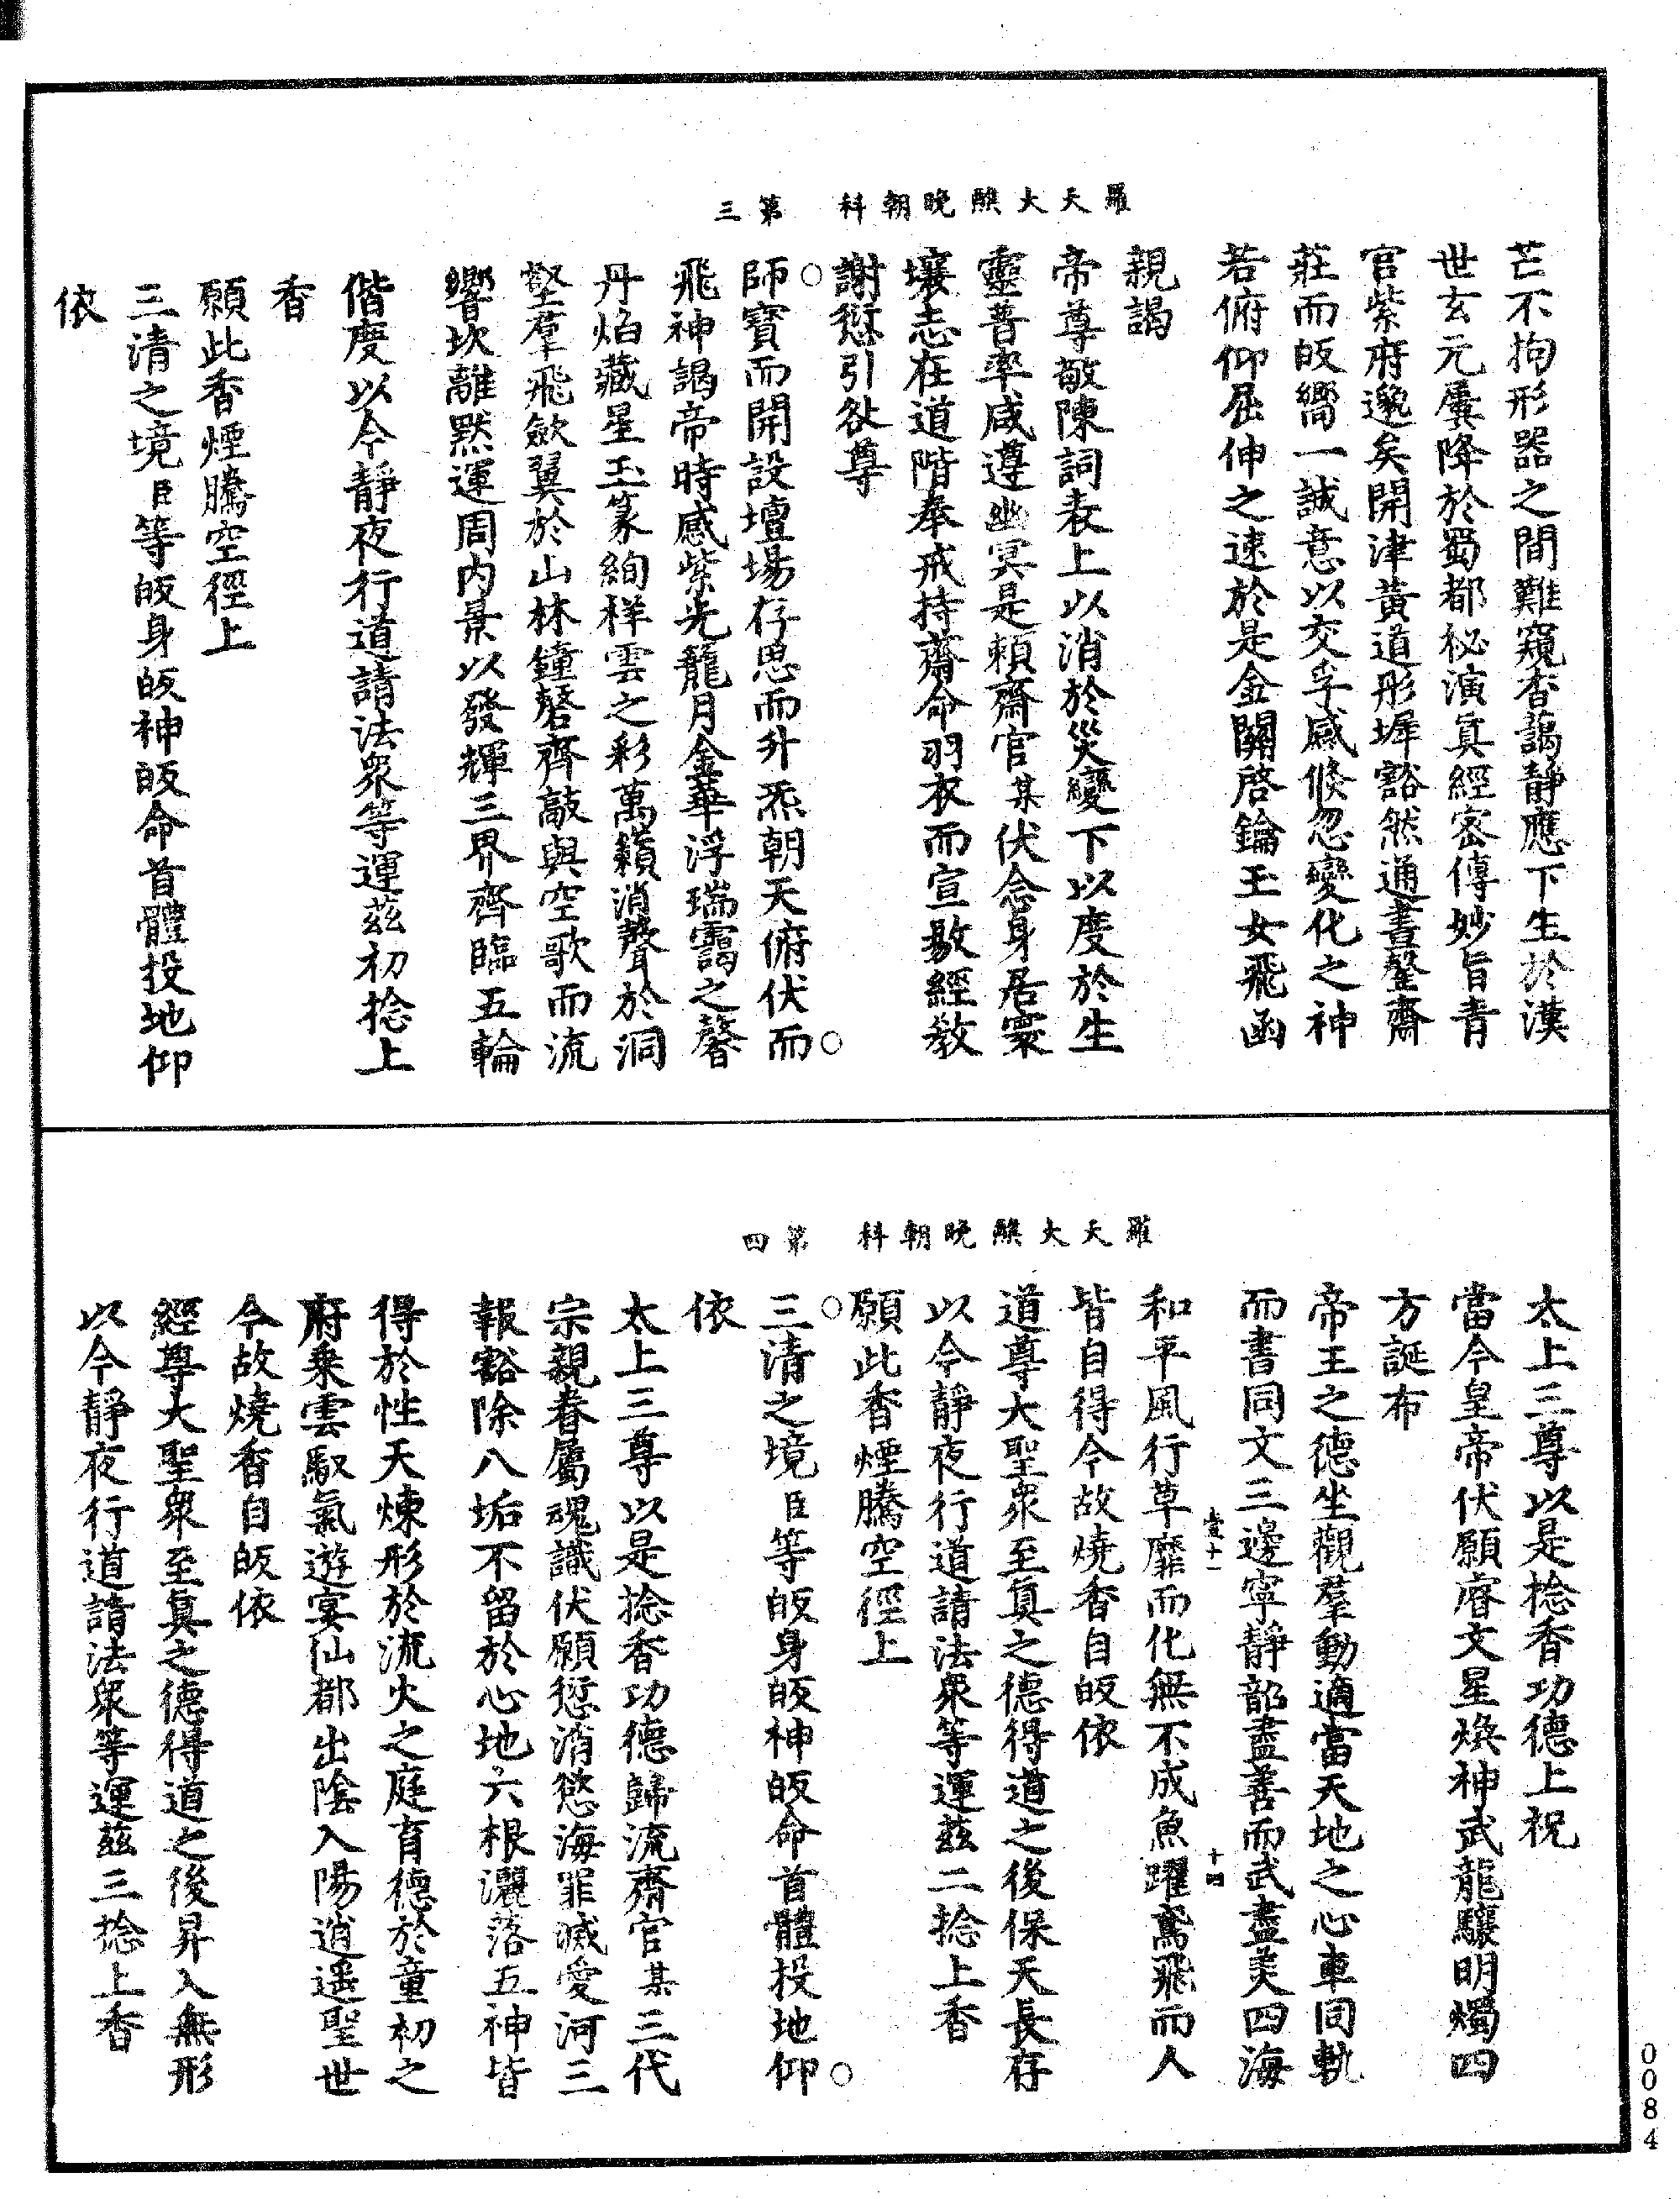 羅天大醮晚朝科　第三
芒不拘形器之間難窺杳藹靜應下生於漢
世玄元屢降於蜀都祕演真經密傳妙旨青
官紫府邈矣開津黃道彤墀豁然通晝罄齋
莊而皈嚮一誠意以交孚感倏忽變化之神
若俯仰屈伸之速於是金關啓鑰玉女飛函
親謁
帝尊敢陳詞表上以消於災變下以度於生
靈普率咸遵幽冥是賴齋官某伏念身居寰
壤志在道階奉戒持齋命羽衣而宣敭經教
謝愆引咎尊
師寶而開設壇場存思而升炁朝天俯伏而
飛神謁帝時感紫光籠月金華浮瑞靄之馨
丹焰藏星玉篆絢祥雲之彩萬籟消聲於洞
壑羣飛斂翼於山林鐘磬齊敲與空歌而流
響坎離默運周內景以發輝三界齊臨五輪
偕度以今靜夜行道請法眾等運茲初捻上
香
願此香煙騰空徑上
三清之境臣等皈身皈神皈命首體投地仰
依
羅天大醮晚朝科　第四
太上三尊以是捻香功德上祝
當今皇帝伏願睿文星煥神武龍驤明燭四
方誕布
帝王之德坐觀羣動適當天地之心車同軌
而書同文三邊寧靜韶盡善而武盡美四海
壹十一　十四
和平風行草靡而化無不成魚躍鳶飛而人
皆自得今故燒香自皈依
道尊大聖眾至真之德得道之後保天長存
以今靜夜行道請法眾等運茲二捻上香
願此香煙騰空徑上
三清之境臣等皈身皈神皈命首體投地仰
依
太上三尊以是捻香功德歸流齋官某三代
宗親眷屬魂識伏願愆消慾海罪滅愛河三
報豁除八垢不留於心地六根灑落五神皆
得於性天煉形於流火之庭育德於童初之
府乘雲馭氣遊宴仙都出陰入陽逍遥聖世
今故燒香自皈依
經尊大聖眾至真之德得道之後昇入無形
以今靜夜行道請法眾等運茲三捻上香
0084